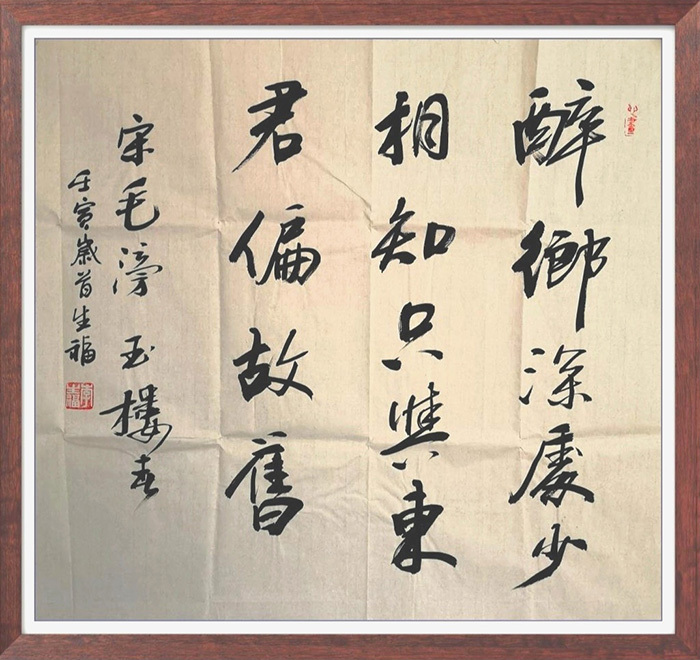 醉鄉深處少
相知只與東
君偏故舊
宋毛滂玉樓春
壬寅歲首生福